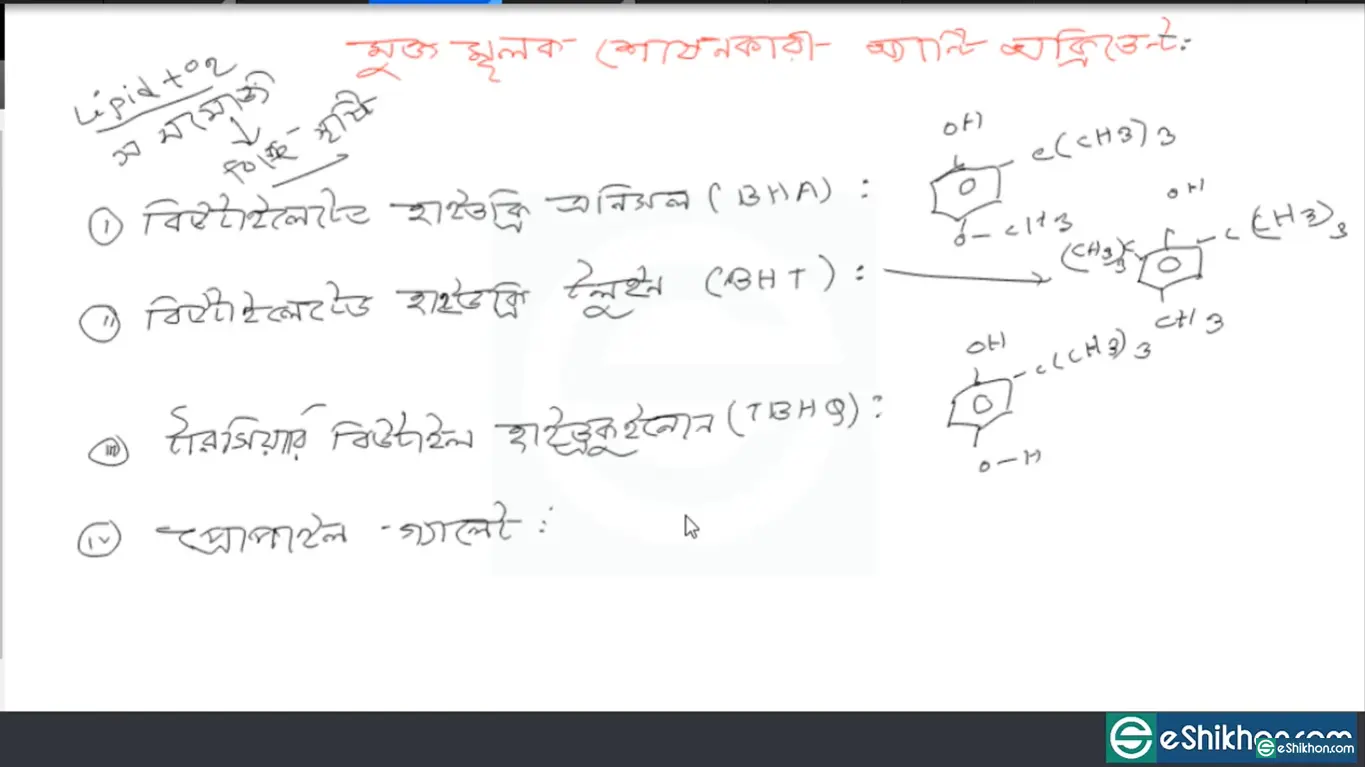 মুক্ত মূলক শোষনকারী অ্যান্টি অক্সিডেন্ট:
Lipid + O2
সমযোজী
মুলক সৃষ্টি
i বিউটাইলেটেড হাইড্রক্সি অনিসল (BHA) :
OH
C(CH3)3
O-CH3
ii বিউটাইলেটেড হাইড্রক্সি টলুইন (BHT) :
OH
(CH3)3C
C(CH3)3
CH3
iii টারসিয়ারি বিউটাইল হাইড্রকুইনোন (TBHQ) :
OH
C(CH3)3
O-H
iv প্রোপাইল গ্যালেট :
eShikhon.com
eShikhon.com